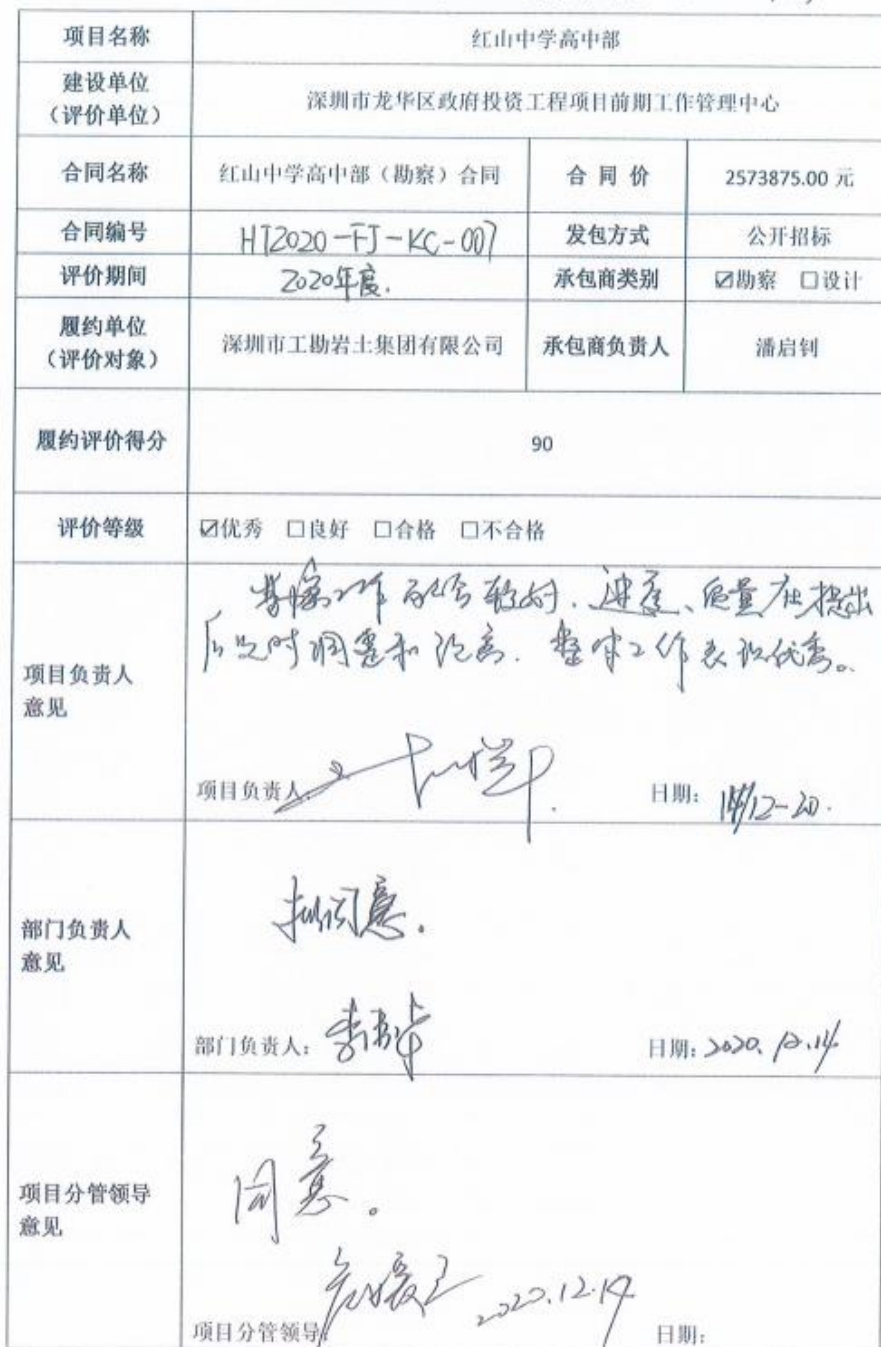 项目名称 红山中学高中部
建设单位
（评价单位） 深圳市龙华区政府投资工程项目前期工作管理中心
合同名称 红山中学高中部（勘察）合同 合同价 2573875.00 元
合同编号 HT2020-FJ-KC-007 发包方式 公开招标
评价期间 2020年度. 承包商类别 ☑勘察 □设计
履约单位
（评价对象） 深圳市工勘岩土集团有限公司 承包商负责人 潘启钊
履约评价得分 90
评价等级 ☑优秀 □良好 □合格 □不合格
工作配合较好、进度、质量在提出
后及时调整和 整体工作表现优秀。
项目负责人
意见
项目负责人: 日期: 14/12-20.
同意。
部门负责人
意见
部门负责人: 日期: 2020.12.14
同意。
项目分管领导
意见
2020.12.14
项目分管领导 日期: